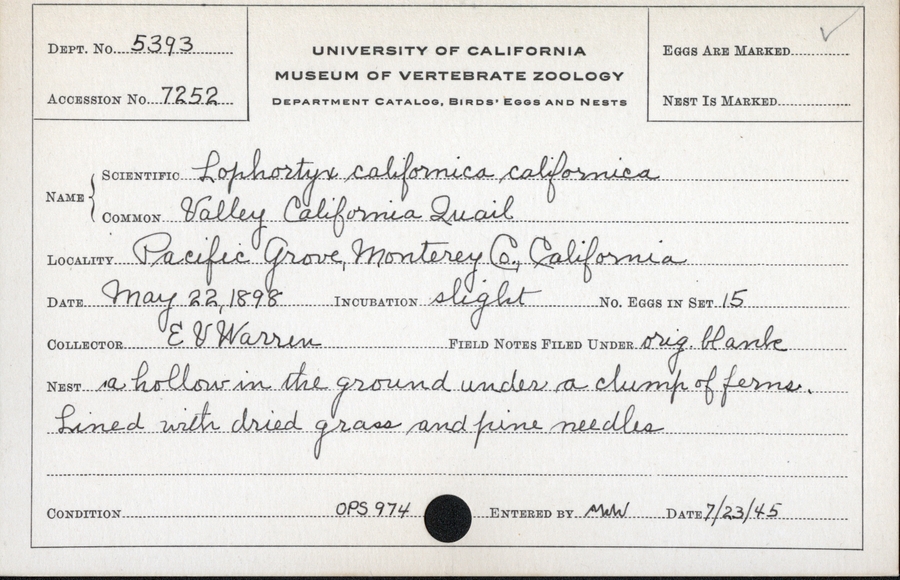 DEPT. NO. 5393
UNIVERSITY OF CALIFORNIA
MUSEUM OF VERTEBRATE ZOOLOGY
DEPARTMENT CATALOG, BIRDS' EGGS AND NESTS
EGGS ARE MARKED ✓
ACCESSION NO. 7252
NEST IS MARKED
NAME { SCIENTIFIC Lophortyx californica californica
COMMON Valley California Quail
LOCALITY Pacific Grove, Monterey Co., California
DATE May 22, 1898 INCUBATION slight NO. EGGS IN SET 15
COLLECTOR E V Warren FIELD NOTES FILED UNDER orig. blank
NEST a hollow in the ground under a clump of ferns.
Lined with dried grass and pine needles
CONDITION OPS 974 ENTERED BY MWW DATE 7/23/45